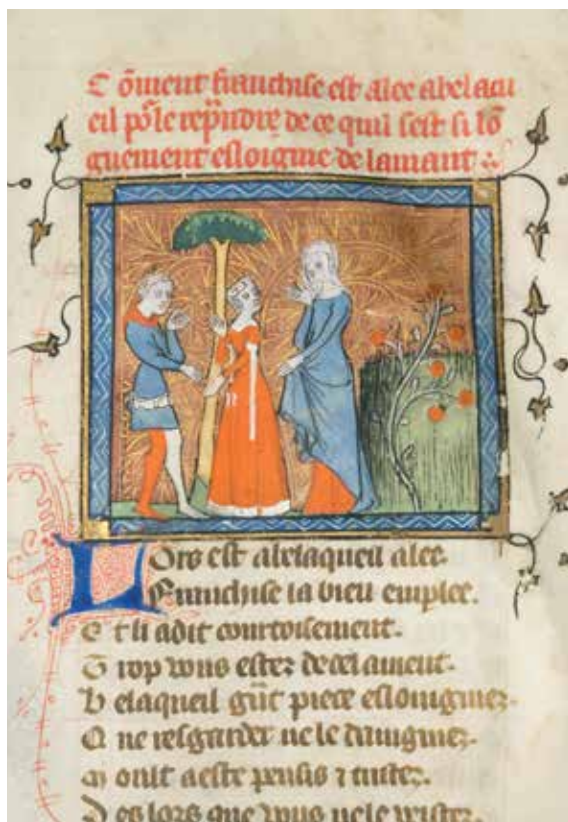 Cōment franchise est alee a belacu
eil pō le rep̃ndre de ce quil sest si lō
guement esloigne de lamant
Lors est abelaqueil alee.
Franchise la bien emplee.
Et li a dit courtoisement.
Trop vous estez de cel ament.
Belaqueil gñt piece eslongniez.
Q ne resgarder ne le daingniez.
Moult a este pensis ⁊ tristez.
Des lors que vous ne le veistez.